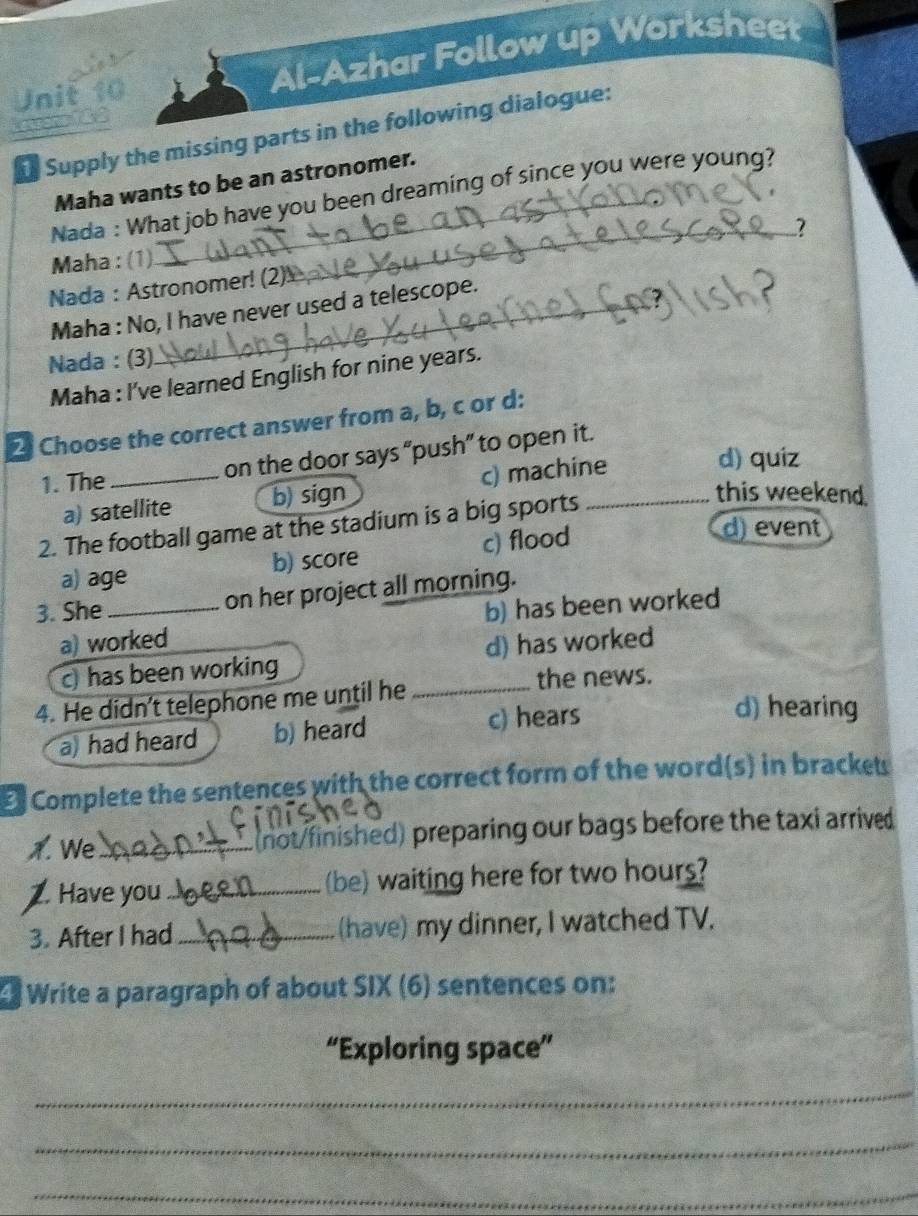 Al-Azhar Follow up Worksheet
Unit 10
1 Supply the missing parts in the following dialogue:
Maha wants to be an astronomer.
Nada : What job have you been dreaming of since you were young?
Maha : (1) I want to be an astronomer.
Nada : Astronomer! (2) Have You used a telescope ?
Maha : No, I have never used a telescope.
Nada : (3) How long have You learned English? ?
Maha : I've learned English for nine years.
2 Choose the correct answer from a, b, c or d:
1. The ______ on the door says “push” to open it.
a) satellite b) sign c) machine d) quiz
2. The football game at the stadium is a big sports ______ this weekend.
a) age b) score c) flood d) event
3. She ______ on her project all morning.
a) worked b) has been worked
c) has been working d) has worked
4. He didn't telephone me until he ______ the news.
a) had heard b) heard c) hears d) hearing
3 Complete the sentences with the correct form of the word(s) in brackets
1. We hadn't finished (not/finished) preparing our bags before the taxi arrived
2. Have you been (be) waiting here for two hours?
3. After I had had (have) my dinner, I watched TV.
4 Write a paragraph of about SIX (6) sentences on:
“Exploring space”